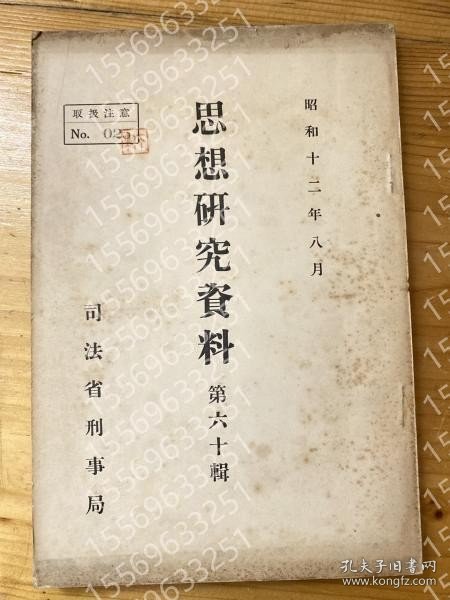 昭和十二年八月
思想研究資料 第六十輯
司法省刑事局
取扱注意
No. 025
15569633251
孔夫子旧书网
www.kongfz.com